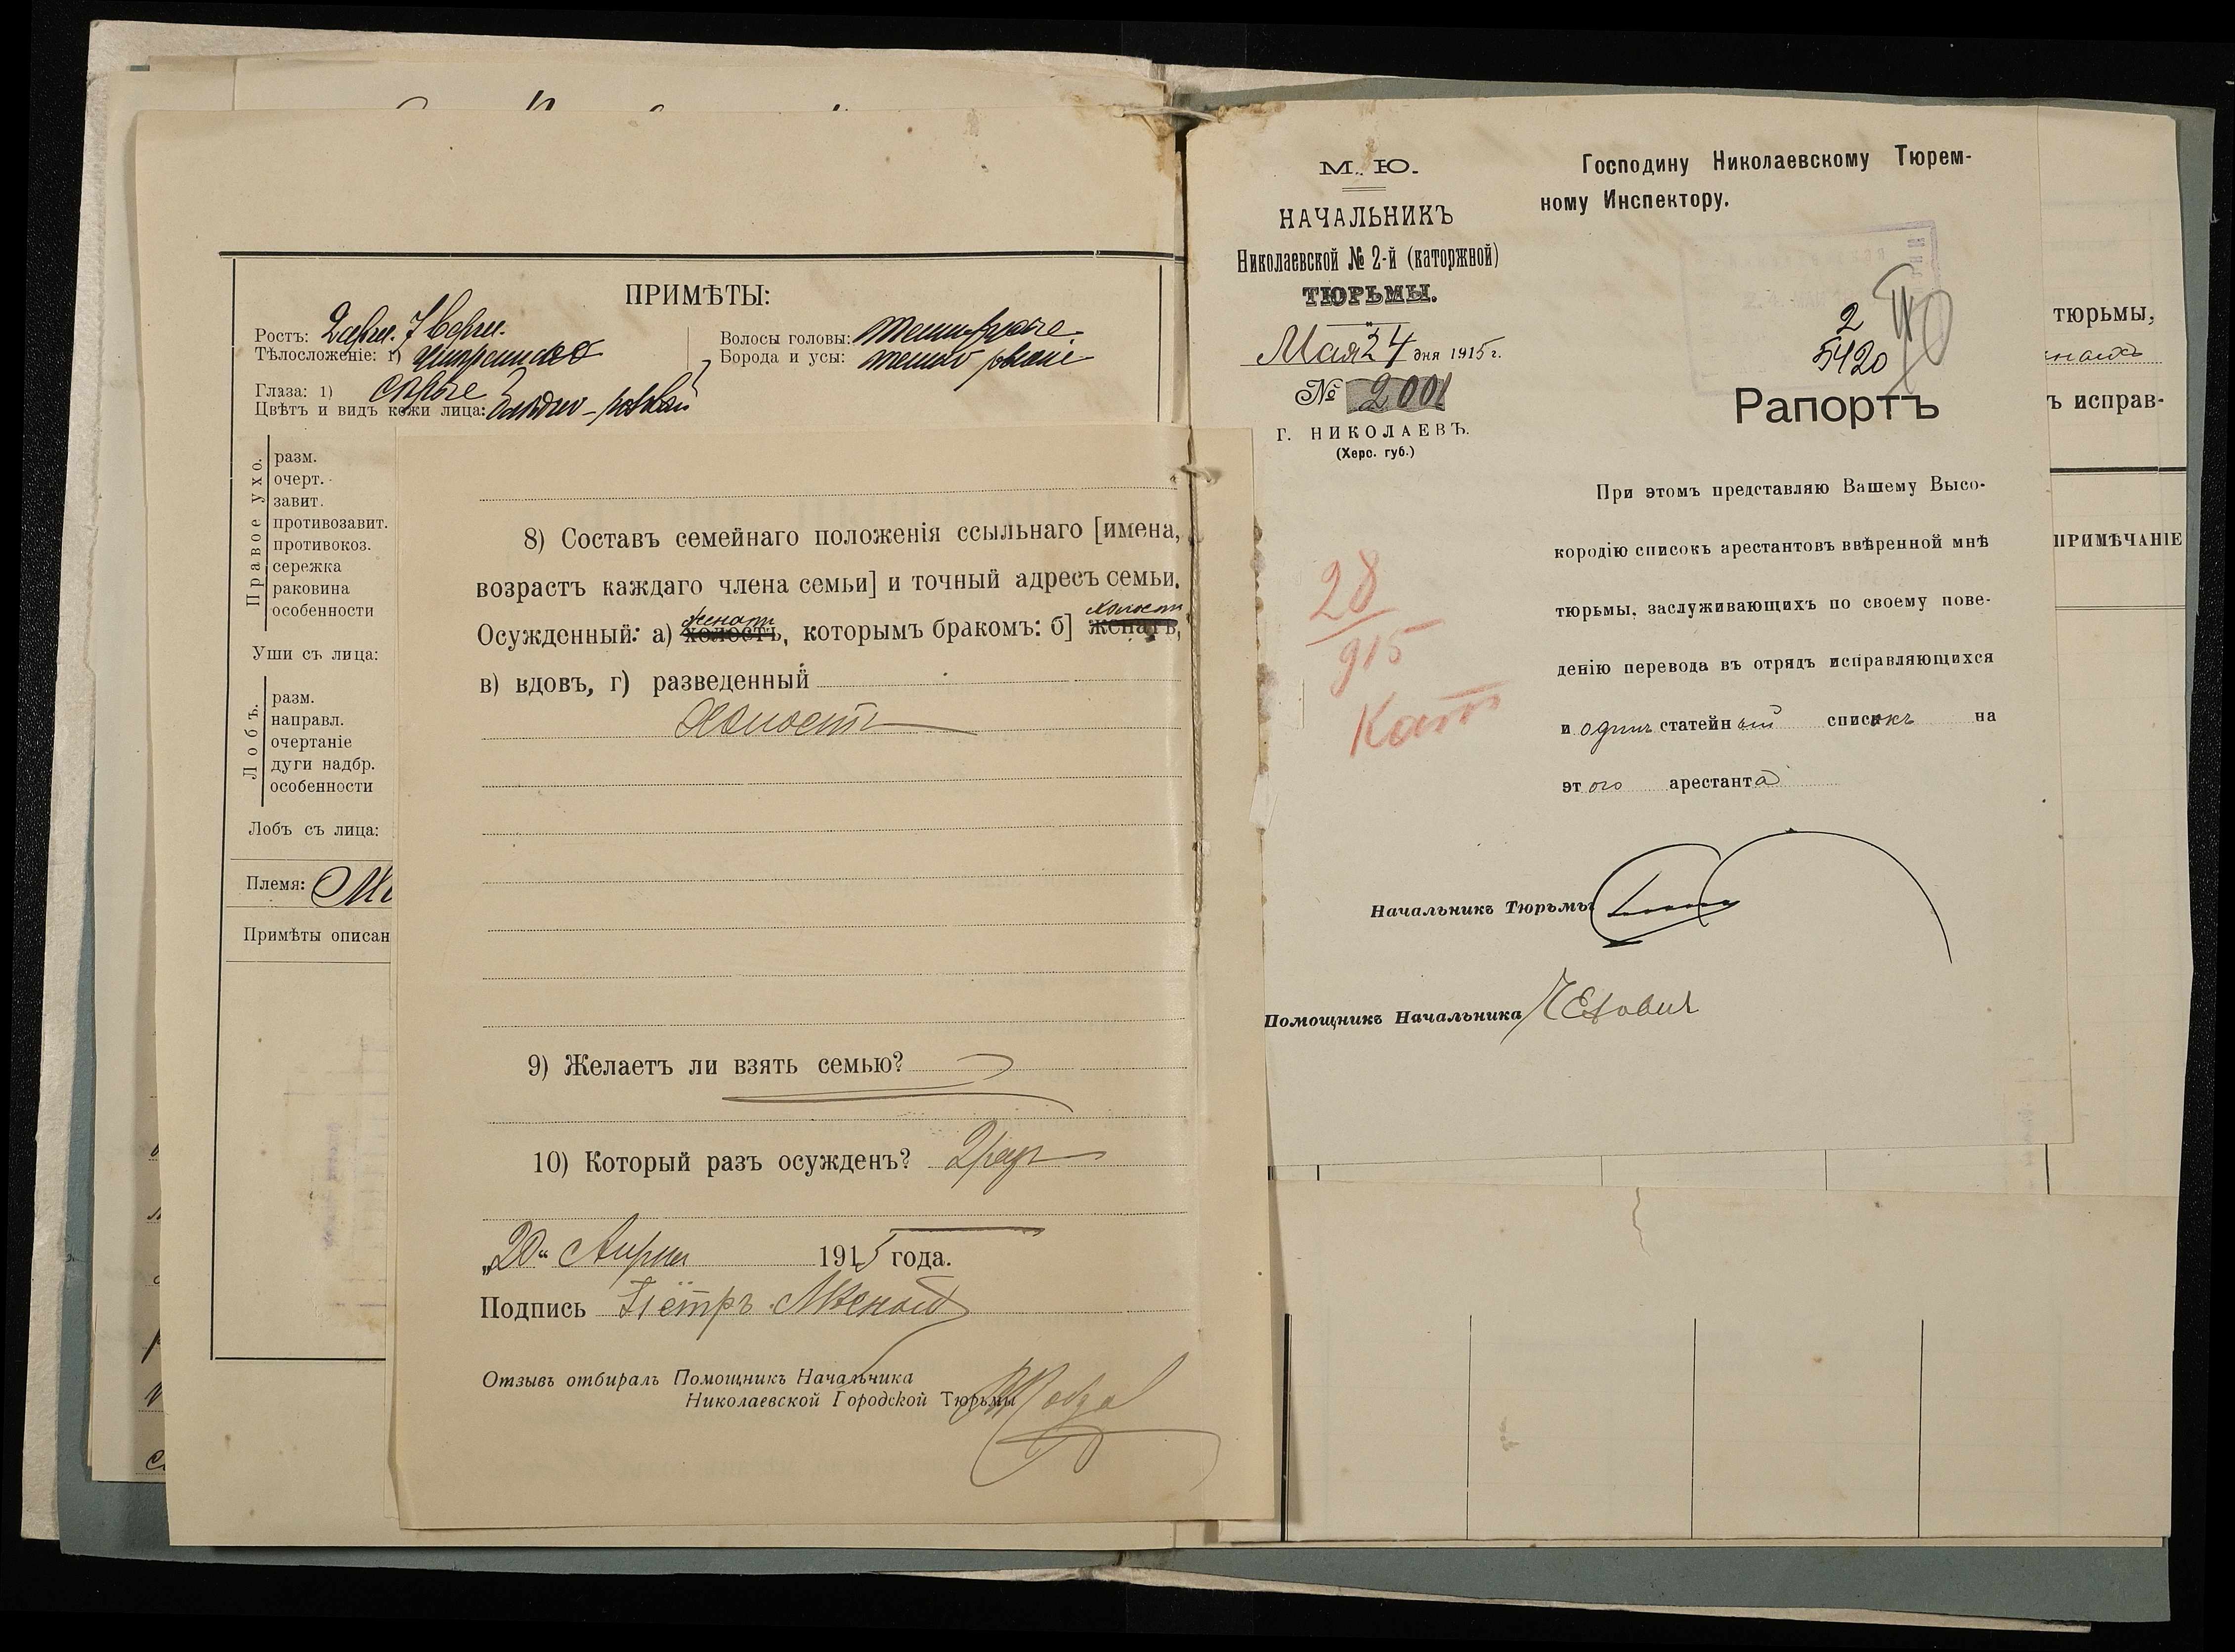 ПРИМѢТЫ:
Ростъ: 2 арш. 7 верш.
Тѣлосложеніе: 1)
Глаза: 1) сѣрые
Цвѣтъ и видъ кожи лица:
Волосы головы: темнорусые
Борода и усы: темно русые
Правое ухо.
разм.
очерт.
завит.
противозавит.
противокоз.
сережка
раковина
особенности
Уши съ лица:
Лобъ.
разм.
направл.
очертаніе
дуги надбр.
особенности
Лобъ съ лица:
Племя:
Примѣты описан
8) Составъ семейнаго положенія ссыльнаго [имена,
возрастъ каждаго члена семьи] и точный адресъ семьи.
женатъ холостъ
Осужденный: а) холостъ, которымъ бракомъ: б] женатъ,
в) вдовъ, г) разведенный
Холостъ
9) Желаетъ ли взять семью?
10) Который разъ осужденъ? 2 разъ
„20“ Апрѣля 1915 года.
Подпись Пётръ
Отзывъ отбиралъ Помощникъ Начальника
Николаевской Городской Тюрьмы
М. Ю.
НАЧАЛЬНИКЪ
Николаевской № 2-й (каторжной)
ТЮРЬМЫ.
Мая 24 дня 1915 г.
№ 2001
Г. НИКОЛАЕВЪ.
(Херс. губ.)
28
915
Кат
Господину Николаевскому Тюрем-
ному Инспектору.
2
5420
Рапортъ
При этомъ представляю Вашему Высо-
кородію списокъ арестантовъ ввѣренной мнѣ
тюрьмы, заслуживающихъ по своему пове-
денію перевода въ отрядъ исправляющихся
и одинъ статейный списокъ на
этого арестанта
Начальникъ Тюрьмы
Помощникъ Начальника
тюрьмы,
ъ исправ-
ПРИМѢЧАНІЕ